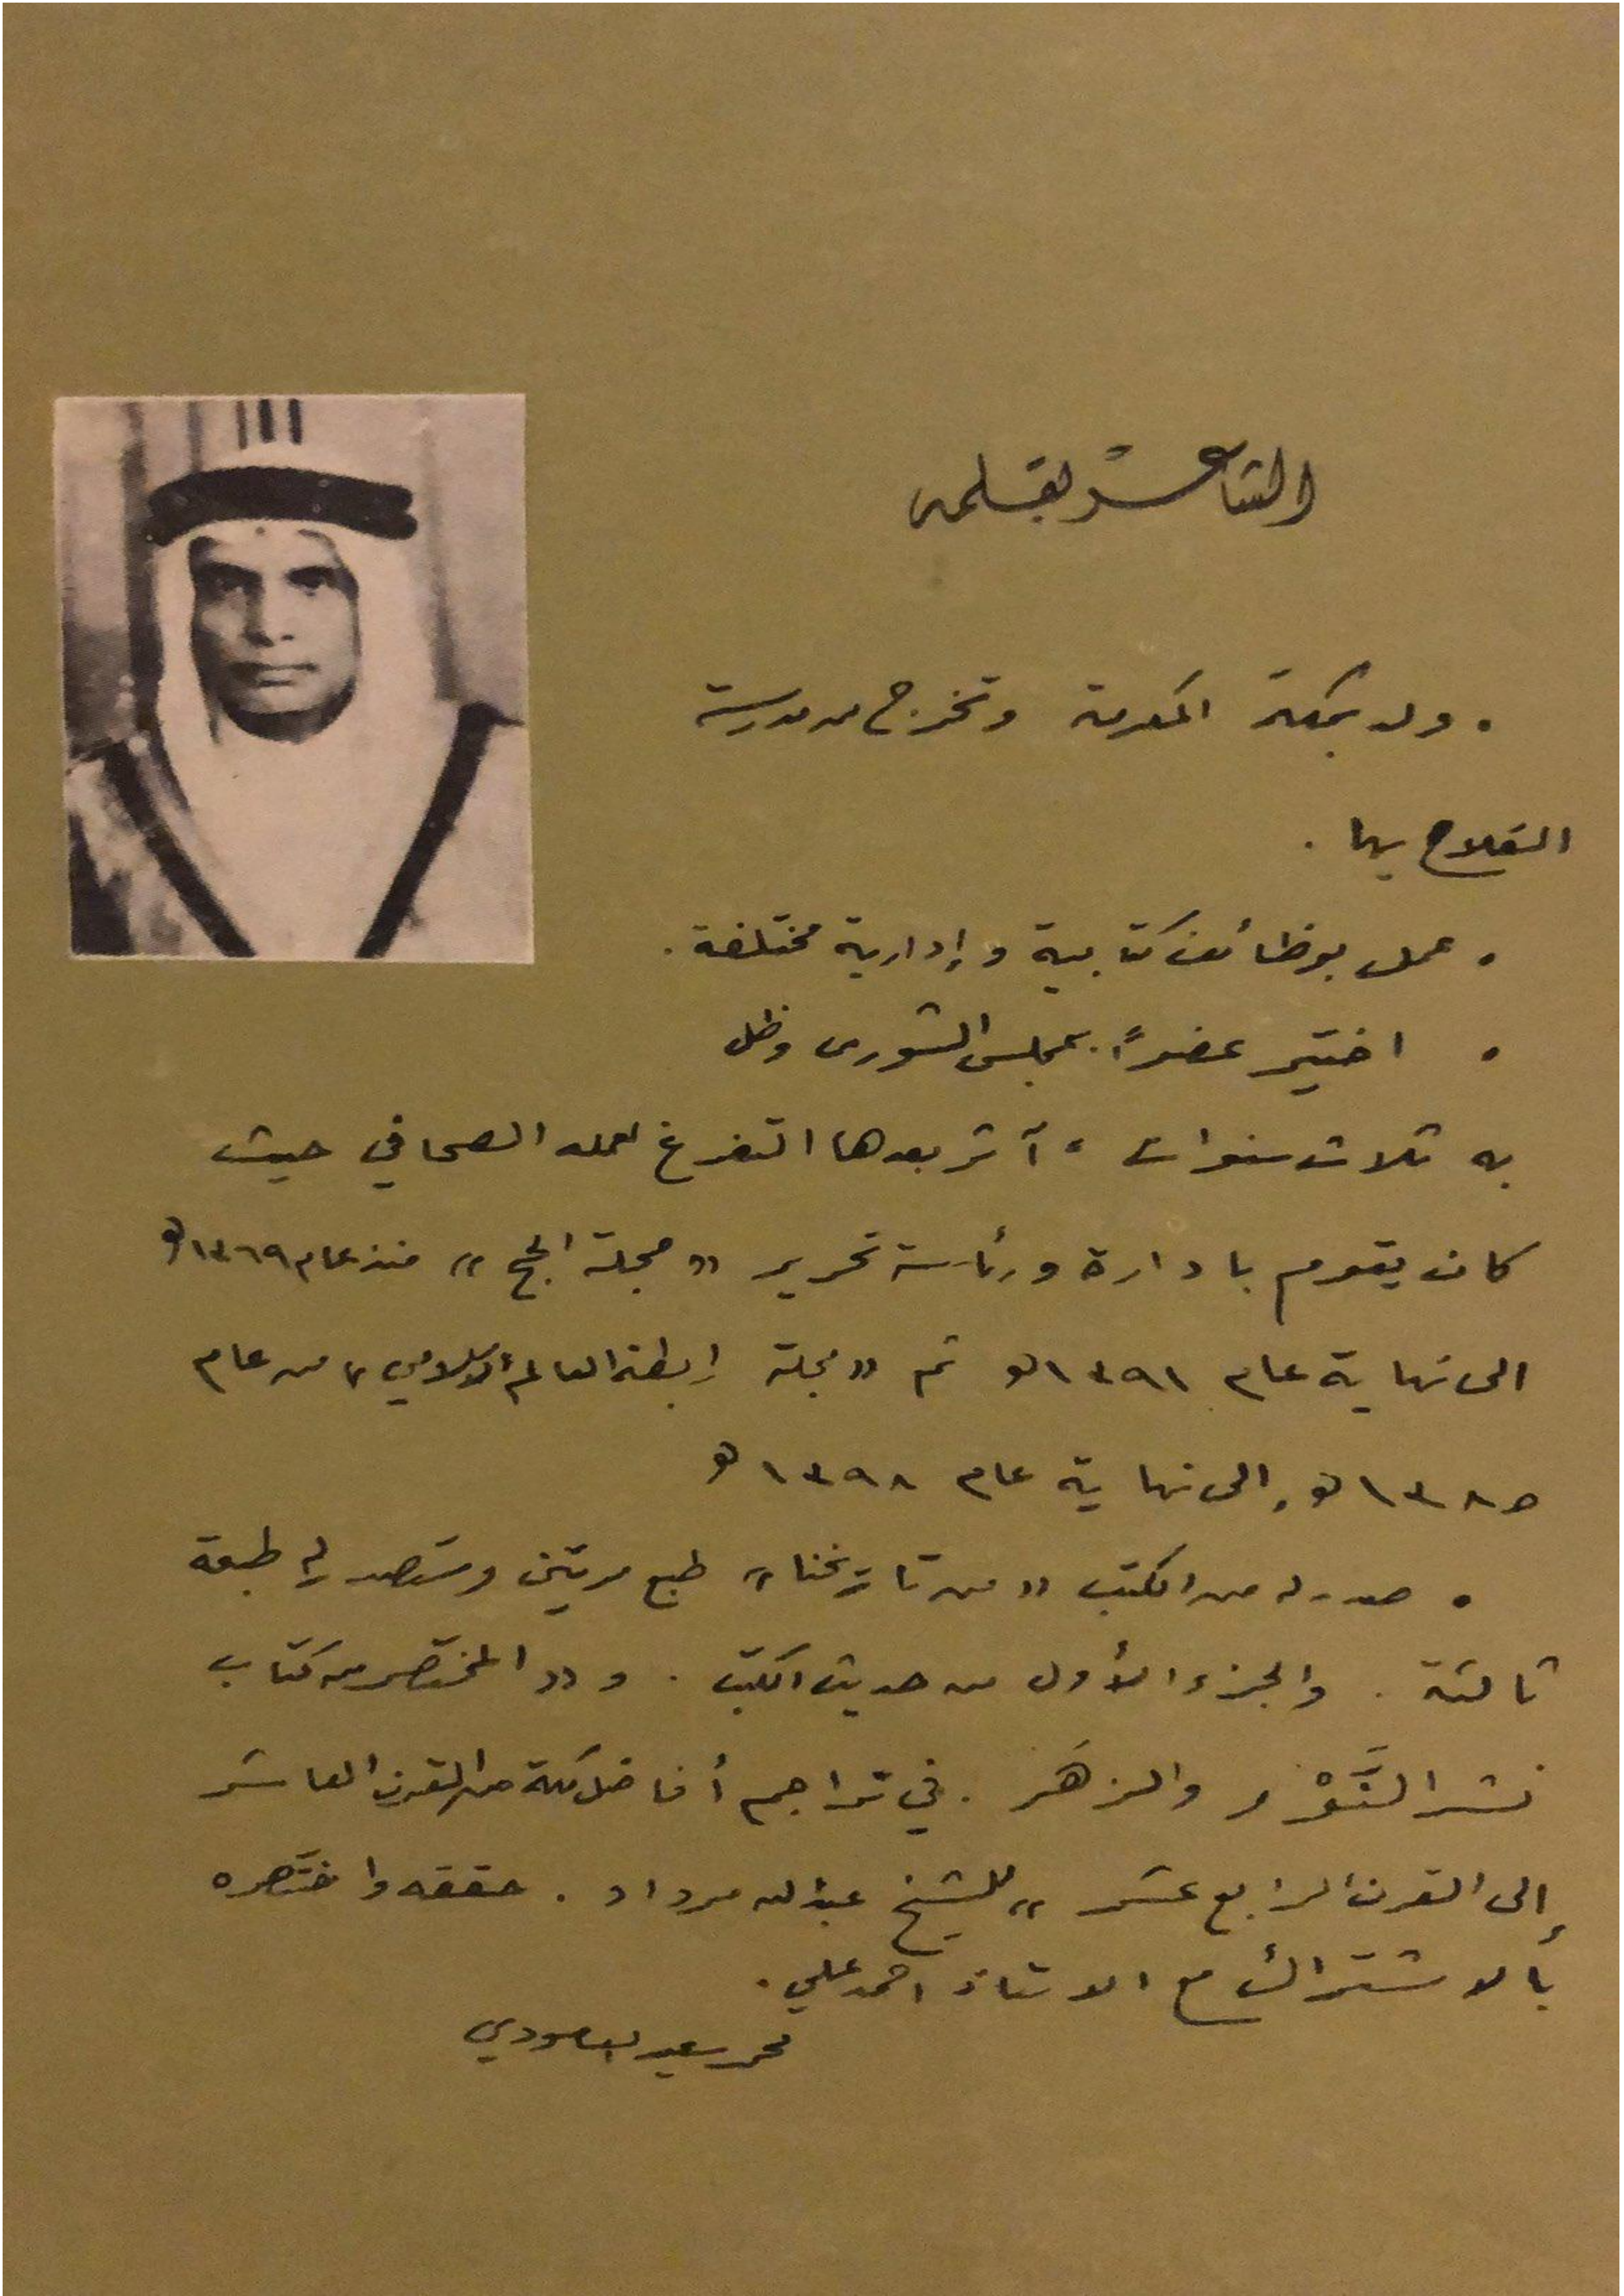 الشاعر بقلمه
• ولد بمكة المكرمة وتخرج من مدرسة
الفلاح بها .
• عمل بوظائف كتابية وإدارية مختلفة .
• اختير عضواً بمجلس الشورى وظل
به ثلاث سنوات ، آثر بعدها التفرغ لعمله الصحافي حيث
كان يقوم بادارة ورئاسة تحرير «مجلة الحج» منذ عام ١٣٦٩هـ
الى نهاية عام ١٣٩١هـ ثم «مجلة رابطة العالم الإسلامي» من عام
١٣٨٥هـ إلى نهاية عام ١٣٩٨هـ
• صدر له من الكتب «من تاريخنا» طبع مرتين وستصدر له طبعة
ثالثة . والجزء الأول من حديث الكتب . و «المختصر من كتاب
نشر النَّوْر والزهَر . في تراجم أفاضل مكة من القرن العاشر
إلى القرن الرابع عشر» للشيخ عبدالله مرداد . حققه واختصره
بألاشتراك مع الاستاذ احمد علي .
محمد سعيد العامودي